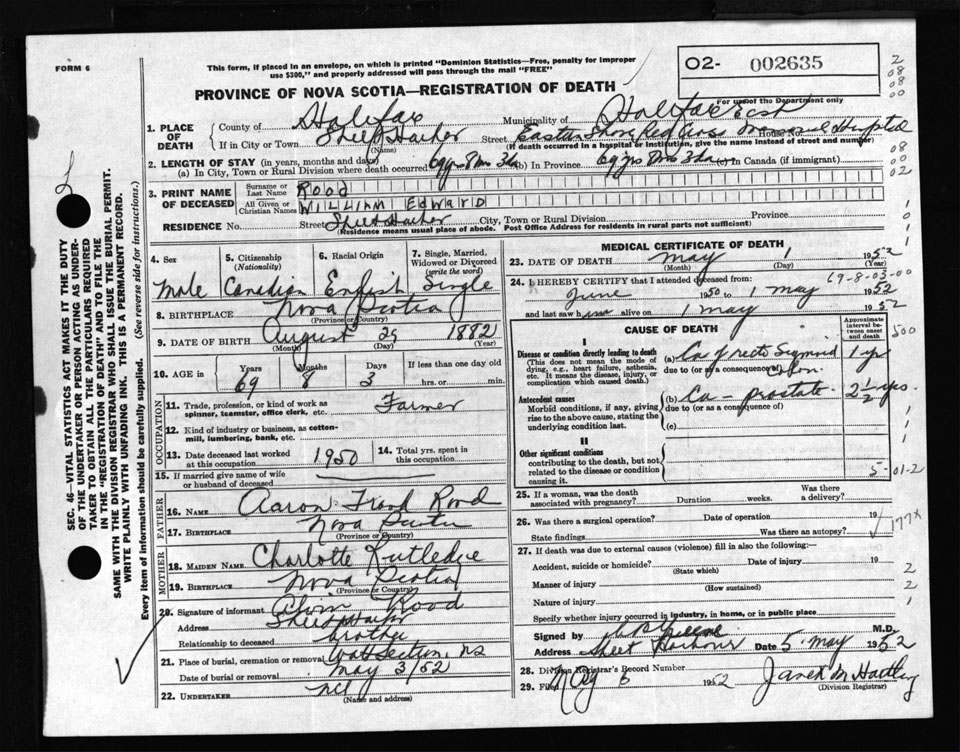 FORM 6
This form, if placed in an envelope, on which is printed "Dominion Statistics—Free, penalty for improper
use $300," and properly addressed will pass through the mail "FREE"
02- 002635
For use of the Department only
PROVINCE OF NOVA SCOTIA—REGISTRATION OF DEATH
1. PLACE OF DEATH
County of Halifax Municipality of Halifax East
If in City or Town Sheet Harbor (Name) Street Eastern Shore Red Cross Memorial Hospital House No.
(If death occurred in a hospital or institution, give the name instead of street and number)
2. LENGTH OF STAY (in years, months and days)
(a) In City, Town or Rural Division where death occurred 69 yrs 8 ms 3 da (b) In Province 69 yrs 8 ms 3 da (c) In Canada (if immigrant)
3. PRINT NAME OF DECEASED
Surname or Last Name ROOD
All Given or Christian Names WILLIAM EDWARD
RESIDENCE No. Street Sheet Harbor City, Town or Rural Division Province
(Residence means usual place of abode. Post Office Address for residents in rural parts not sufficient)
4. Sex 5. Citizenship (Nationality) 6. Racial Origin 7. Single, Married, Widowed or Divorced (write the word)
Male Canadian English Single
8. BIRTHPLACE Nova Scotia
(Province or Country)
9. DATE OF BIRTH August 29 1882
(Month) (Day) (Year)
10. AGE in Years Months Days If less than one day
69 8 3 hrs. or min.
OCCUPATION
11. Trade, profession, or kind of work as spinner, teamster, office clerk, etc. Farmer
12. Kind of industry or business, as cotton-mill, lumbering, bank, etc.
13. Date deceased last worked at this occupation 1950 14. Total yrs. spent in this occupation
15. If married give name of wife or husband of deceased
FATHER
16. NAME Aaron Rood
17. BIRTHPLACE Nova Scotia
(Province or Country)
MOTHER
18. MAIDEN NAME Charlotte Rutledge
19. BIRTHPLACE Nova Scotia
(Province or Country)
20. Signature of informant Rood
Address Sheet Harbor
Relationship to deceased brother
21. Place of burial, cremation or removal Watt Section NS
Date of burial or removal May 3/52
22. UNDERTAKER
(Name and address)
MEDICAL CERTIFICATE OF DEATH
23. DATE OF DEATH May 1 1952
(Month) (Day) (Year)
69-8-03-00
24. I HEREBY CERTIFY that I attended deceased from:
June 1950 to 1 May 1952
and last saw him alive on 1 May 1952
CAUSE OF DEATH
Approximate interval between onset and death
I
Disease or condition directly leading to death
(This does not mean the mode of dying, e.g., heart failure, asthenia, etc. It means the disease, injury, or complication which caused death.)
(a) Ca of recto Sigmoid Colon 1 yr
due to (or as a consequence of)
Antecedent causes
Morbid conditions, if any, giving rise to the above cause, stating the underlying condition last.
(b) Ca - prostate 2½ yrs.
due to (or as a consequence of)
(c)
II
Other significant conditions
contributing to the death, but not related to the disease or condition causing it.
5-01-2
25. If a woman, was the death associated with pregnancy? Duration weeks. Was there a delivery?
26. Was there a surgical operation? Date of operation 19
State findings Was there an autopsy?
177x
27. If death was due to external causes (violence) fill in also the following:—
Accident, suicide or homicide? Date of injury 19
(State which)
Manner of injury
(How sustained)
Nature of injury
Specify whether injury occurred in industry, in home, or in public place
Signed by M.D.
Address Sheet Harbour Date 5 May 1952
28. Division Registrar's Record Number
29. Filed May 5 1952
(Division Registrar)
SEC. 46—VITAL STATISTICS ACT MAKES IT THE DUTY
OF THE UNDERTAKER OR PERSON ACTING AS UNDER-
TAKER TO OBTAIN ALL THE PARTICULARS REQUIRED
IN THE "REGISTRATION OF DEATH" AND TO FILE THE
SAME WITH THE DIVISION REGISTRAR WHO SHALL ISSUE THE BURIAL PERMIT.
WRITE PLAINLY WITH UNFADING INK. THIS IS A PERMANENT RECORD.
Every item of information should be carefully supplied. (See reverse side for instructions.)